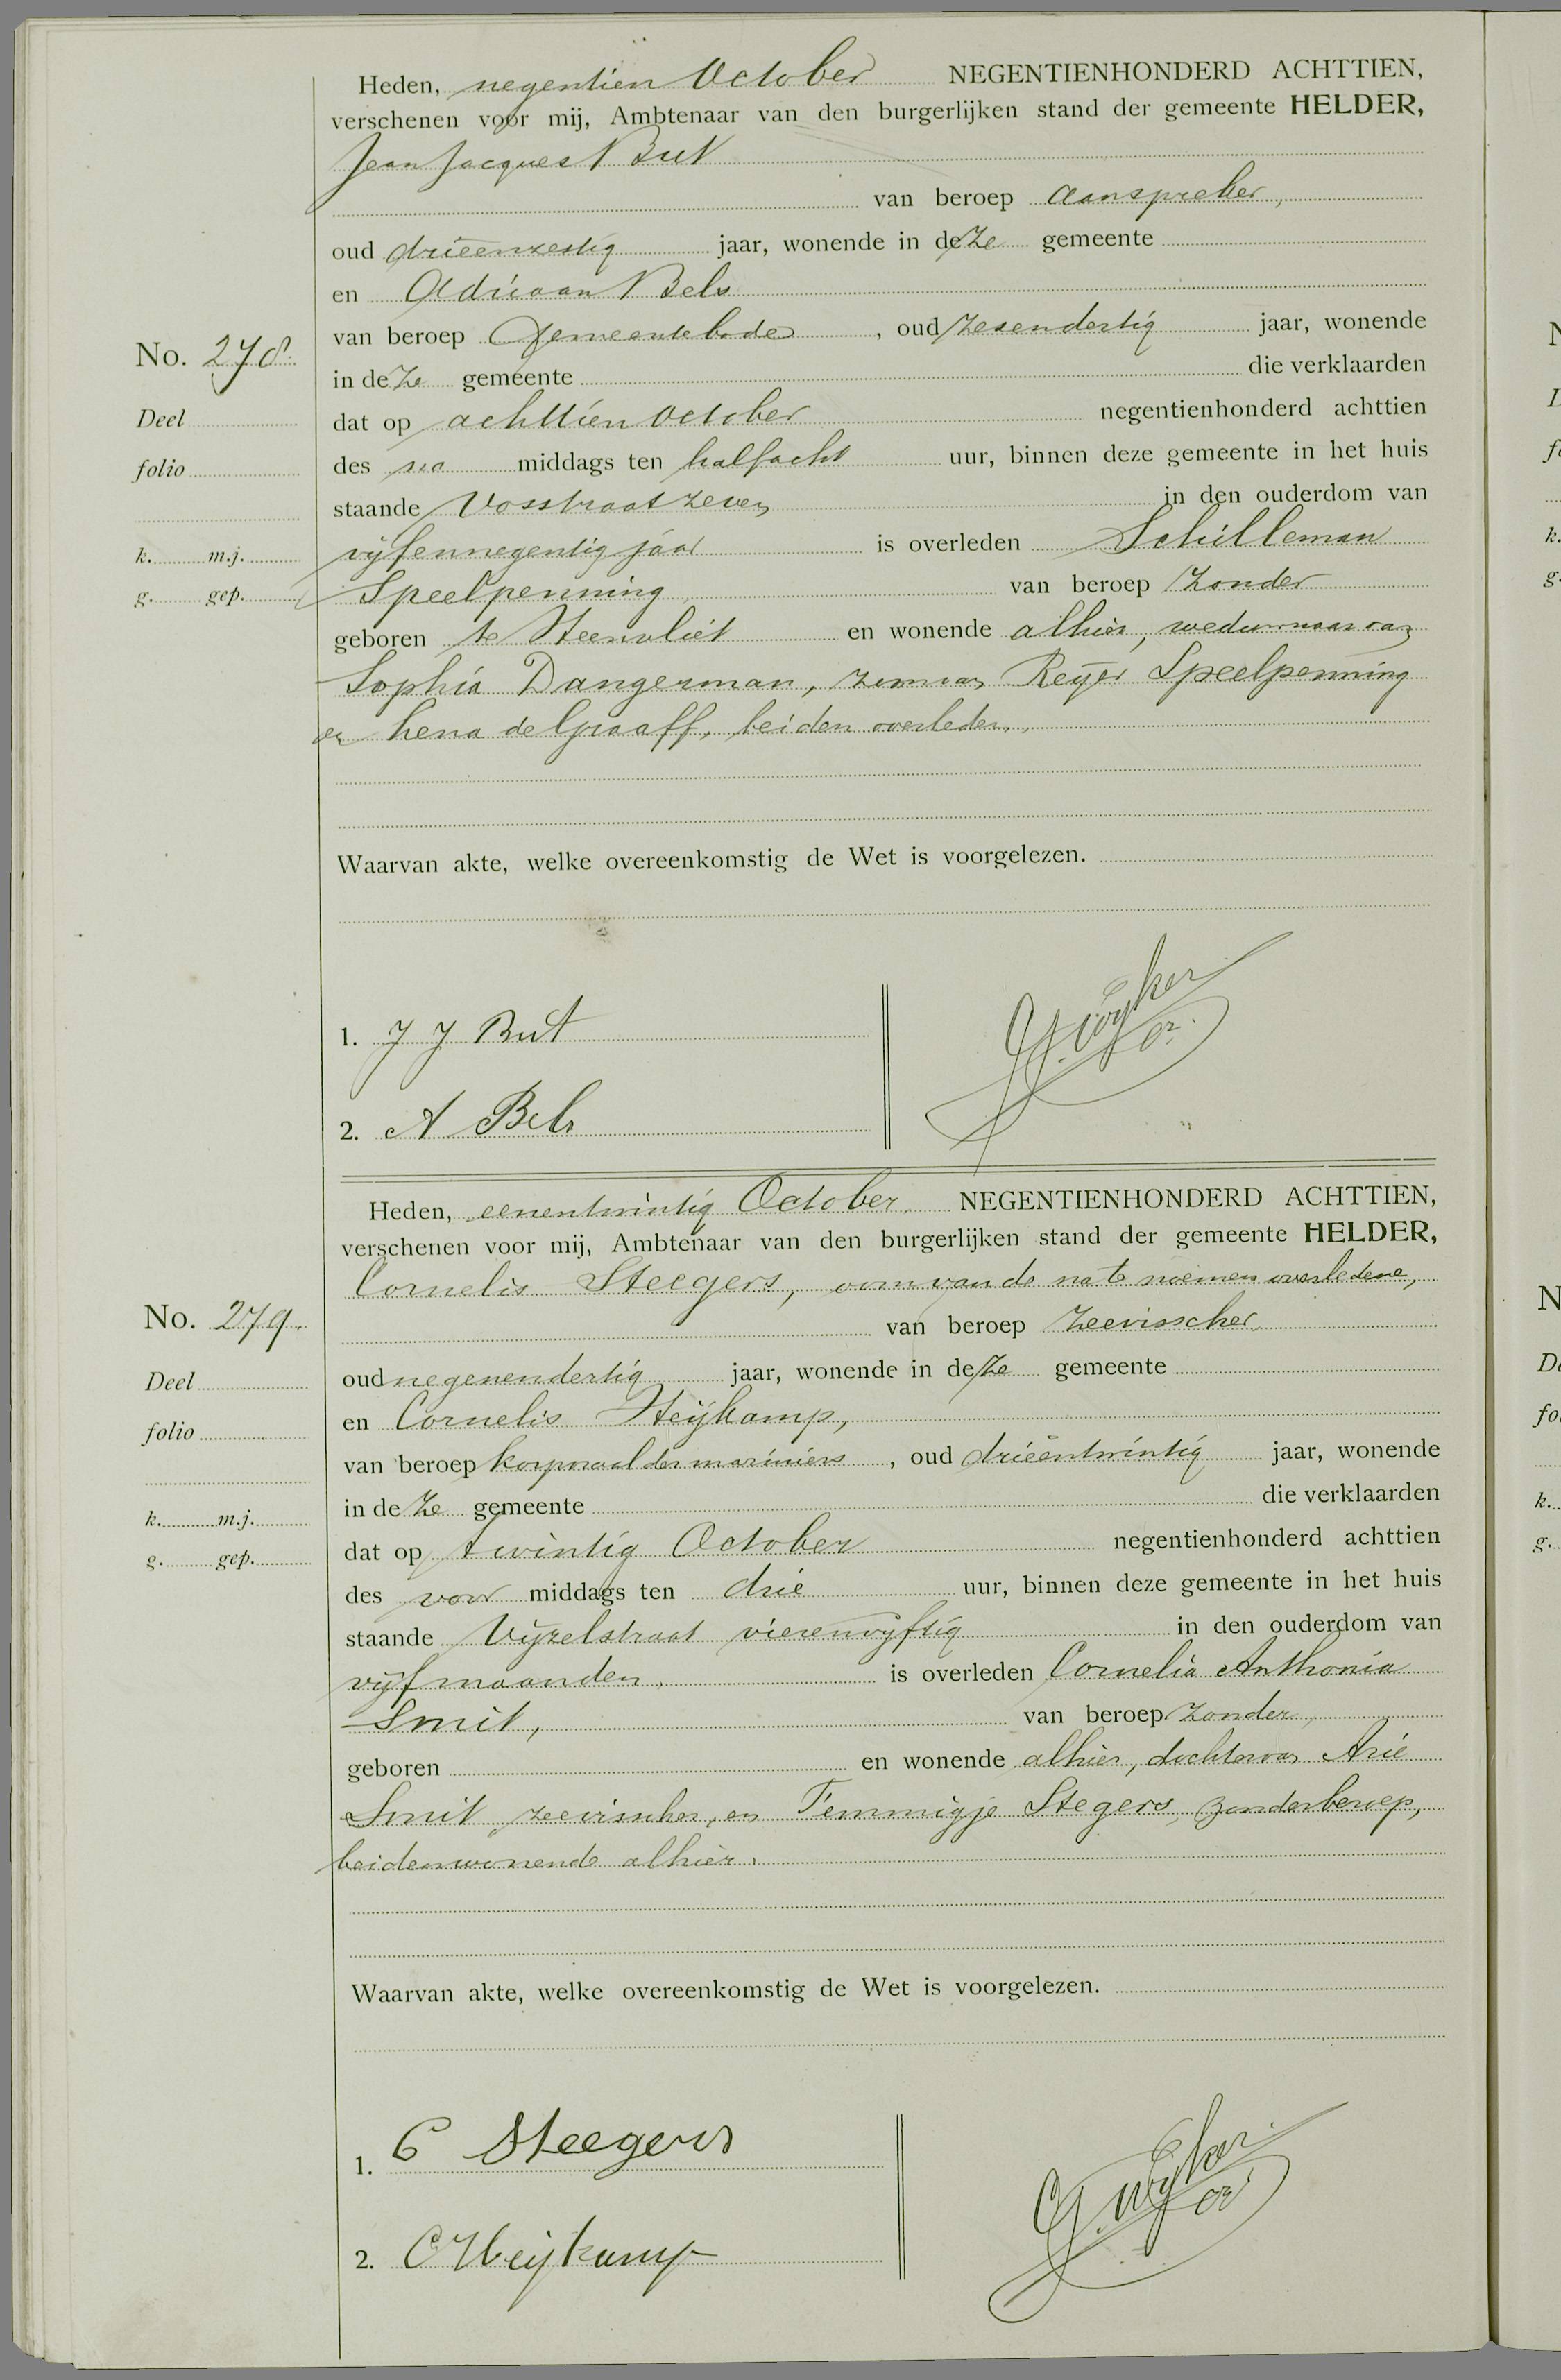 Heden, negentien October NEGENTIENHONDERD ACHTTIEN,
verschenen voor mij, Ambtenaar van den burgerlijken stand der gemeente HELDER,
Jean Jacques But
van beroep aanspreker,
oud drieënzestig jaar, wonende in deze gemeente
en Adriaan Bels
van beroep Gemeentebode, oud zesendertig jaar, wonende
No. 278.
in deze gemeente die verklaarden
Deel
dat op achttien October negentienhonderd achttien
folio
des na middags ten half acht uur, binnen deze gemeente in het huis
staande Vosstraat zeven in den ouderdom van
k. m.j.
vijfennegentig jaar is overleden Schilleman
g. gep.
Speelpenning, van beroep zonder
geboren te Heenvliet en wonende alhier, weduwnaar van
Sophia Dangerman, zoon van Reijer Speelpenning
en Lena de Graaff, beiden overleden.
Waarvan akte, welke overeenkomstig de Wet is voorgelezen.
1. J J But
2. A Bels
Heden, eenentwintig October NEGENTIENHONDERD ACHTTIEN,
verschenen voor mij, Ambtenaar van den burgerlijken stand der gemeente HELDER,
Cornelis Steegers, oom van de na te noemen overledene,
No. 279.
van beroep zeevisscher,
Deel
oud negenendertig jaar, wonende in deze gemeente
folio
en Cornelis Heijkamp,
van beroep korporaal der mariniers, oud drieëntwintig jaar, wonende
in deze gemeente die verklaarden
k. m.j.
dat op twintig October negentienhonderd achttien
g. gep.
des voor middags ten drie uur, binnen deze gemeente in het huis
staande Vijzelstraat vierenvijftig in den ouderdom van
vijf maanden, is overleden Cornelia Anthonia
Smit, van beroep zonder,
geboren en wonende alhier, dochter van Arie
Smit, zeevisscher, en Femmigje Stegers, zonder beroep,
beiden wonende alhier.
Waarvan akte, welke overeenkomstig de Wet is voorgelezen.
1. C Steegers
2. C Heijkamp